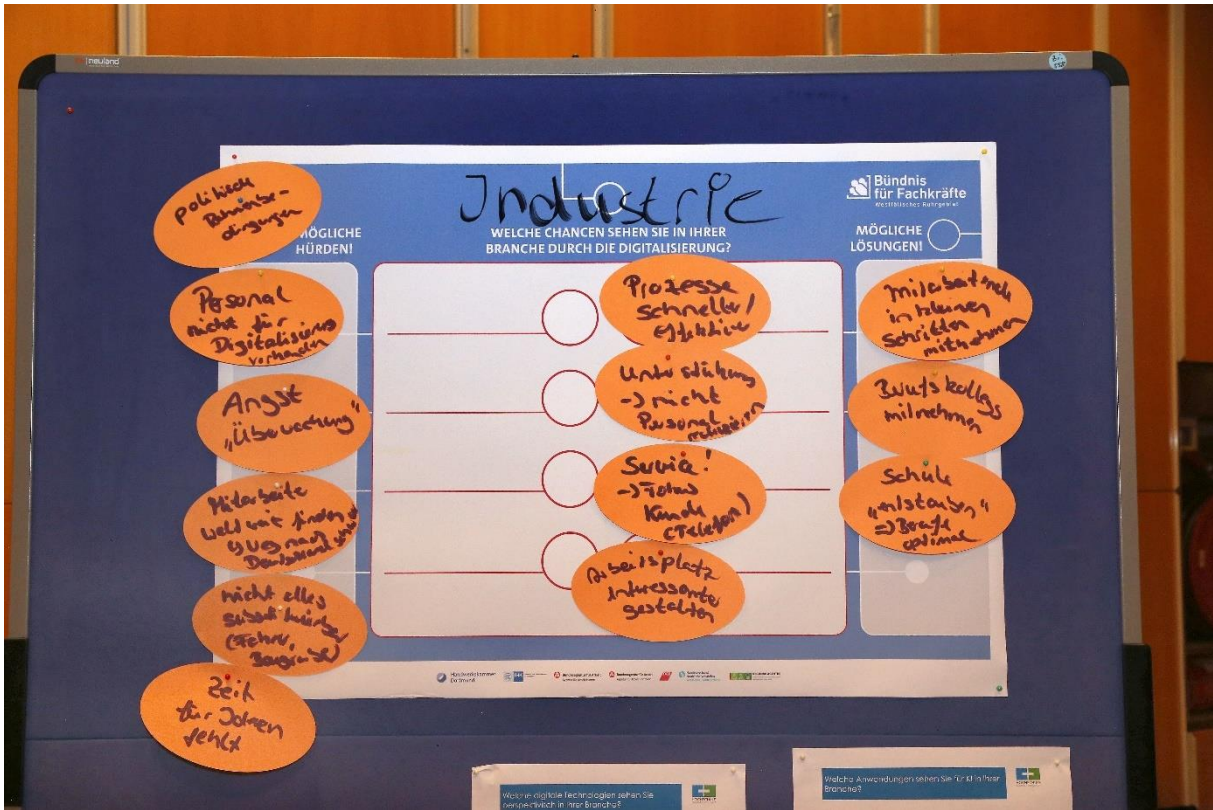 neuland
Industrie
Bündnis
für Fachkräfte
Westfälisches Ruhrgebiet
MÖGLICHE
HÜRDEN!
WELCHE CHANCEN SEHEN SIE IN IHRER
BRANCHE DURCH DIE DIGITALISIERUNG?
MÖGLICHE
LÖSUNGEN!
politische
Rahmenbe-
dingungen
Personal
nicht für
Digitalisierung
vorhanden
Angst
„Überwachung“
Mitarbeiter
weltweit finden
Weg nach
Deutschland
nicht alles
(Fahrer,
Zeit
für Ideen
fehlt
Prozesse
schneller/
effektiver
Unterstützung
-> nicht
Personal
Service!
-> Fokus
Kunde
(Telefon)
Arbeitsplatz
interessanter
gestalten
in kleinen
Schritten
mitnehmen
Berufskollegs
mitnehmen
Schule
„entstauben“
=> Berufe
optimal
Handwerkskammer
Dortmund
Welche digitale Technologien sehen Sie
perspektivisch in Ihrer Branche?
Welche Anwendungen sehen Sie für KI in Ihrer
Branche?